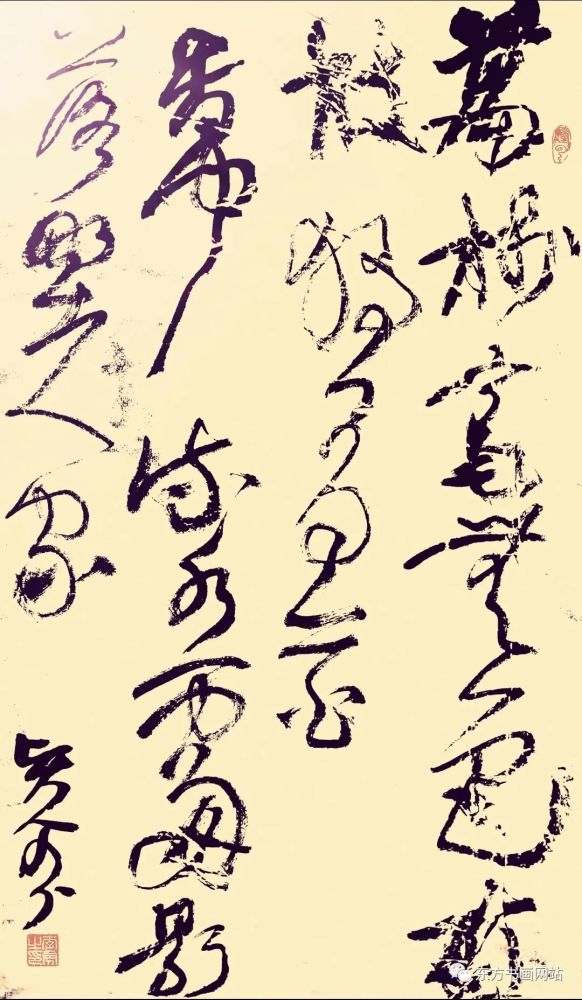 萬樹寒無色南
枝獨有花
香聞流水處影
落野人家
东方书画网站